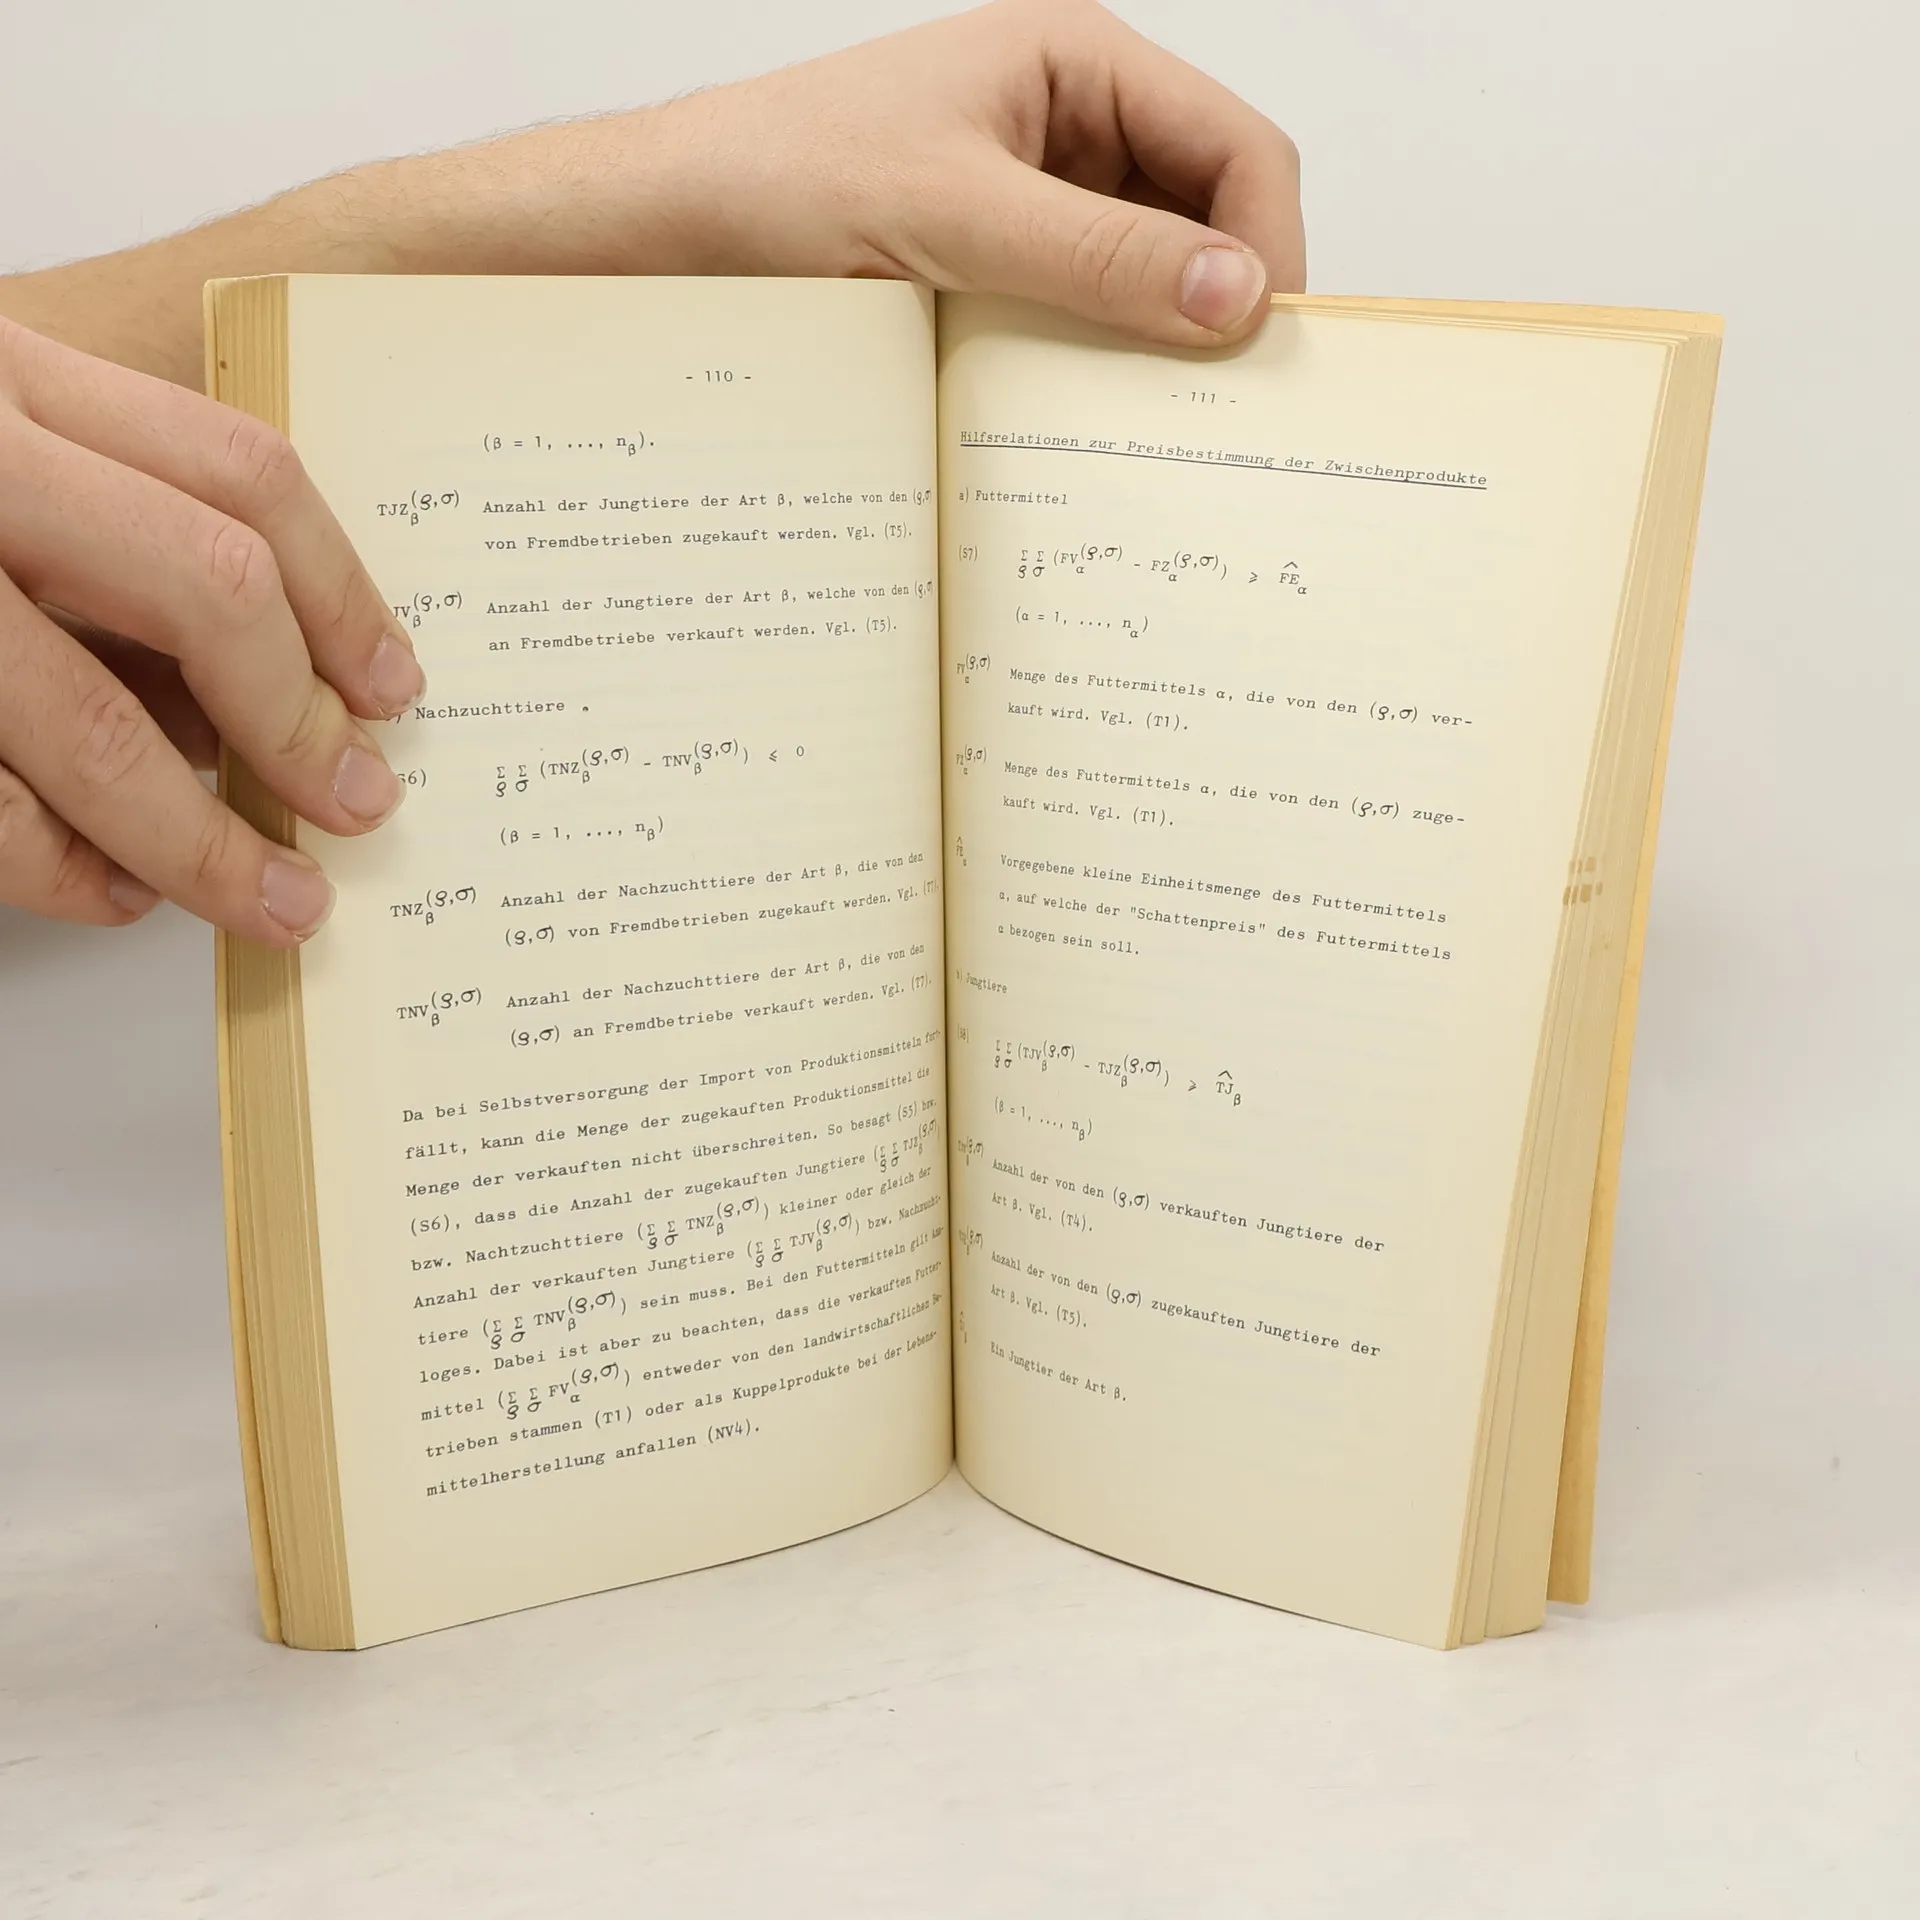 - 110 -
(β = 1, ..., nβ).
TJZβ(ϱ,σ) Anzahl der Jungtiere der Art β, welche von den (ϱ,σ)
von Fremdbetrieben zugekauft werden. Vgl. (T5).
JVβ(ϱ,σ) Anzahl der Jungtiere der Art β, welche von den (ϱ,σ)
an Fremdbetriebe verkauft werden. Vgl. (T5).
) Nachzuchttiere .
S6) Σϱ Σσ (TNZβ(ϱ,σ) - TNVβ(ϱ,σ)) ⩽ 0
(β = 1, ..., nβ)
TNZβ(ϱ,σ) Anzahl der Nachzuchttiere der Art β, die von den
(ϱ,σ) von Fremdbetrieben zugekauft werden. Vgl. (T7).
TNVβ(ϱ,σ) Anzahl der Nachzuchttiere der Art β, die von den
(ϱ,σ) an Fremdbetriebe verkauft werden. Vgl. (T7).
Da bei Selbstversorgung der Import von Produktionsmitteln fort-
fällt, kann die Menge der zugekauften Produktionsmittel die
Menge der verkauften nicht überschreiten. So besagt (S5) bzw.
(S6), dass die Anzahl der zugekauften Jungtiere (Σϱ Σσ TJZβ(ϱ,σ))
bzw. Nachtzuchttiere (Σϱ Σσ TNZβ(ϱ,σ)) kleiner oder gleich der
Anzahl der verkauften Jungtiere (Σϱ Σσ TJVβ(ϱ,σ)) bzw. Nachzucht-
tiere (Σϱ Σσ TNVβ(ϱ,σ)) sein muss. Bei den Futtermitteln gilt Ana-
loges. Dabei ist aber zu beachten, dass die verkauften Futter-
mittel (Σϱ Σσ FVα(ϱ,σ)) entweder von den landwirtschaftlichen Be-
trieben stammen (T1) oder als Kuppelprodukte bei der Lebens-
mittelherstellung anfallen (NV4).
- 111 -
Hilfsrelationen zur Preisbestimmung der Zwischenprodukte
a) Futtermittel
(S7) Σϱ Σσ (FVα(ϱ,σ) - FZα(ϱ,σ)) ⩾ F̂Eα
(α = 1, ..., nα)
FVα(ϱ,σ) Menge des Futtermittels α, die von den (ϱ,σ) ver-
kauft wird. Vgl. (T1).
FZα(ϱ,σ) Menge des Futtermittels α, die von den (ϱ,σ) zuge-
kauft wird. Vgl. (T1).
F̂Eα Vorgegebene kleine Einheitsmenge des Futtermittels
α, auf welche der "Schattenpreis" des Futtermittels
α bezogen sein soll.
Jungtiere
(S8) Σϱ Σσ (TJVβ(ϱ,σ) - TJZβ(ϱ,σ)) ⩾ T̂Jβ
(β = 1, ..., nβ)
Anzahl der von den (ϱ,σ) verkauften Jungtiere der
Art β. Vgl. (T4).
Anzahl der von den (ϱ,σ) zugekauften Jungtiere der
Art β. Vgl. (T5).
Ein Jungtier der Art β.